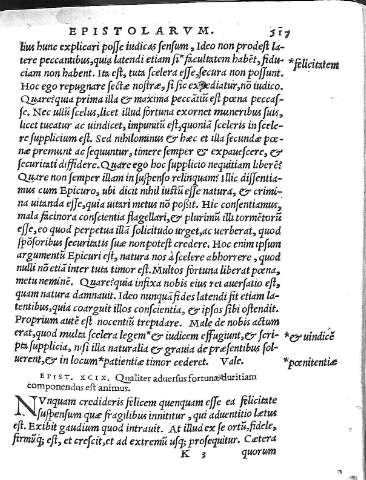 EPISTOLARVM. 517
lius hunc explicari posse iudicas sensum, Ideo non prodest la-
tere peccantibus, quia latendi etiam si " facultatem habēt, fidu- *felicitatem
ciam non habent. Ita est, tuta scelera esse, secura non possunt.
Hoc ego repugnare sectæ nostræ, si sic expediatur, nō iudico.
Quare? quia prima illa & maxima peccātiū est pœna peccas-
se. Nec ullū scelus, licet illud fortuna exornet muneribus suis,
licet tueatur ac uindicet, impunitū est, quoniā sceleris in scele-
re supplicium est. Sed nihilominus & hæc et illa secundæ pœ-
næ premunt ac sequuntur, timere semper & expauescere, &
securitati diffidere. Quare ego hoc supplicio nequitiam liberē?
Quare non semper illam in suspenso relinquam? Illic dissentia-
mus cum Epicuro, ubi dicit nihil iustū esse natura, & crimi-
na uitanda esse, quia uitari metus nō possit. Hic consentiamus,
mala facinora conscientia flagellari, & plurimū illi tormētorū
esse, eo quod perpetua illā solicitudo urget, ac uerberat, quod
spōsoribus securitatis suæ non potest credere. Hoc enim ipsum
argumentū Epicuri est, natura nos à scelere abhorrere, quod
nulli nō etiā inter tuta timor est. Multos fortuna liberat pœna,
metu neminē. Quare? quia infixa nobis eius rei auersatio est,
quam natura damnauit. Ideo nunquā fides latendi fit etiam la-
tentibus, quia coarguit illos conscientia, & ipsos sibi ostendit.
Proprium autē est nocentiū trepidare. Male de nobis actum
erat, quod multa scelera legem " & iudicem effugiunt, & scri- *& uindicē
pta supplicia, nisi illa naturalia & grauia de præsentibus sol-
uerent, & in locum * patientiæ timor cederet. Vale. *pœnitentiæ
EPIST. XCIX. Qualiter aduersus fortunæ duritiam
componendus est animus.
NVnquam credideris felicem quenquam esse ea felicitate
suspensum quæ fragilibus innititur, qui aduentitio lætus
est. Exibit gaudium quod intrauit. At illud ex se ortū, fidele,
firmūq; est, et crescit, et ad extremū usq; prosequitur. Cætera
K 3 quorum